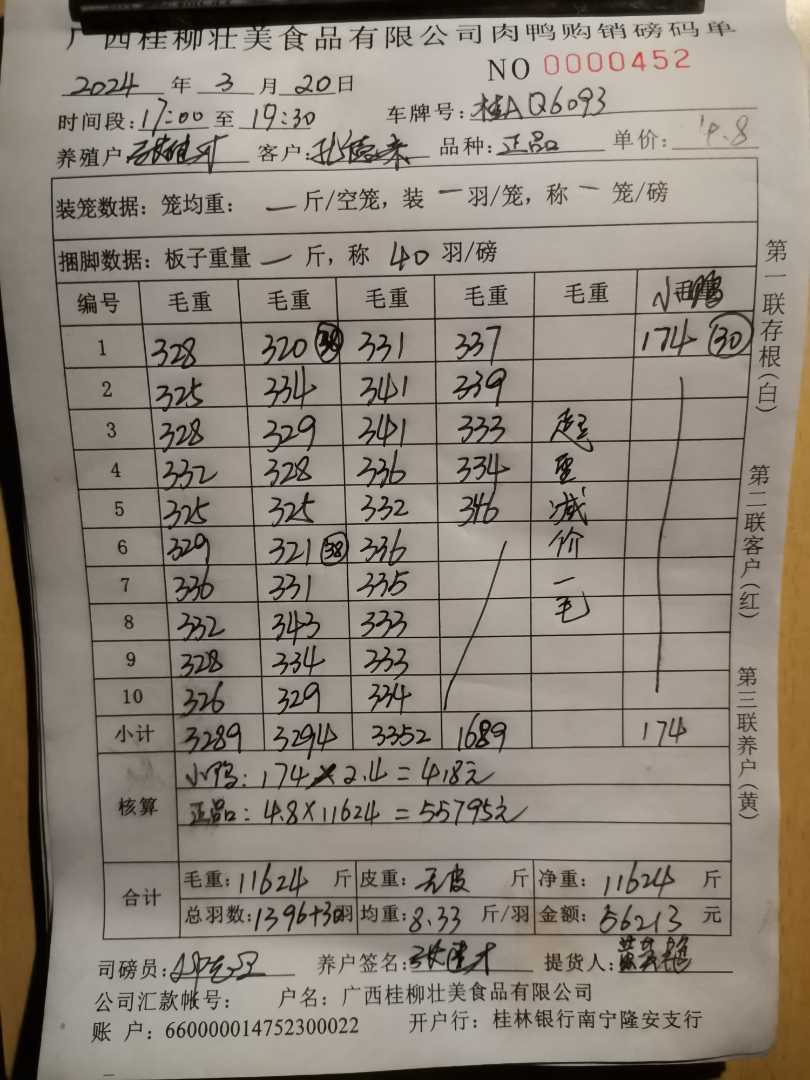 广西桂柳壮美食品有限公司肉鸭购销磅码单
NO 0000452
2024 年 3 月 20 日
时间段:17:00 至 19:30 车牌号:桂AQ6093
养殖户 客户: 品种:正品 单价:4.8
装笼数据:笼均重: 一 斤/空笼,装 一 羽/笼,称 一 笼/磅
捆脚数据:板子重量 一 斤,称 40 羽/磅
编号 毛重 毛重 毛重 毛重 毛重 小鸭
1 328 320 38 331 337 174 30
2 325 334 341 339
3 328 329 341 333 超
4 332 328 336 334 重
5 325 325 332 346 减
6 329 321 38 336 价
7 336 331 335 一
8 332 343 333 毛
9 328 334 333
10 326 329 334
小计 3289 3294 3352 1689 174
核算 小鸭:174×2.4=418元
正品:4.8×11624=55795元
合计 毛重:11624 斤 皮重:无皮 斤 净重:11624 斤
总羽数:1396+30羽 均重:8.33 斤/羽 金额:56213 元
司磅员: 养户签名: 提货人:
公司汇款帐号: 户名:广西桂柳壮美食品有限公司
账 户:660000014752300022 开户行:桂林银行南宁隆安支行
第一联存根(白) 第二联客户(红) 第三联养户(黄)